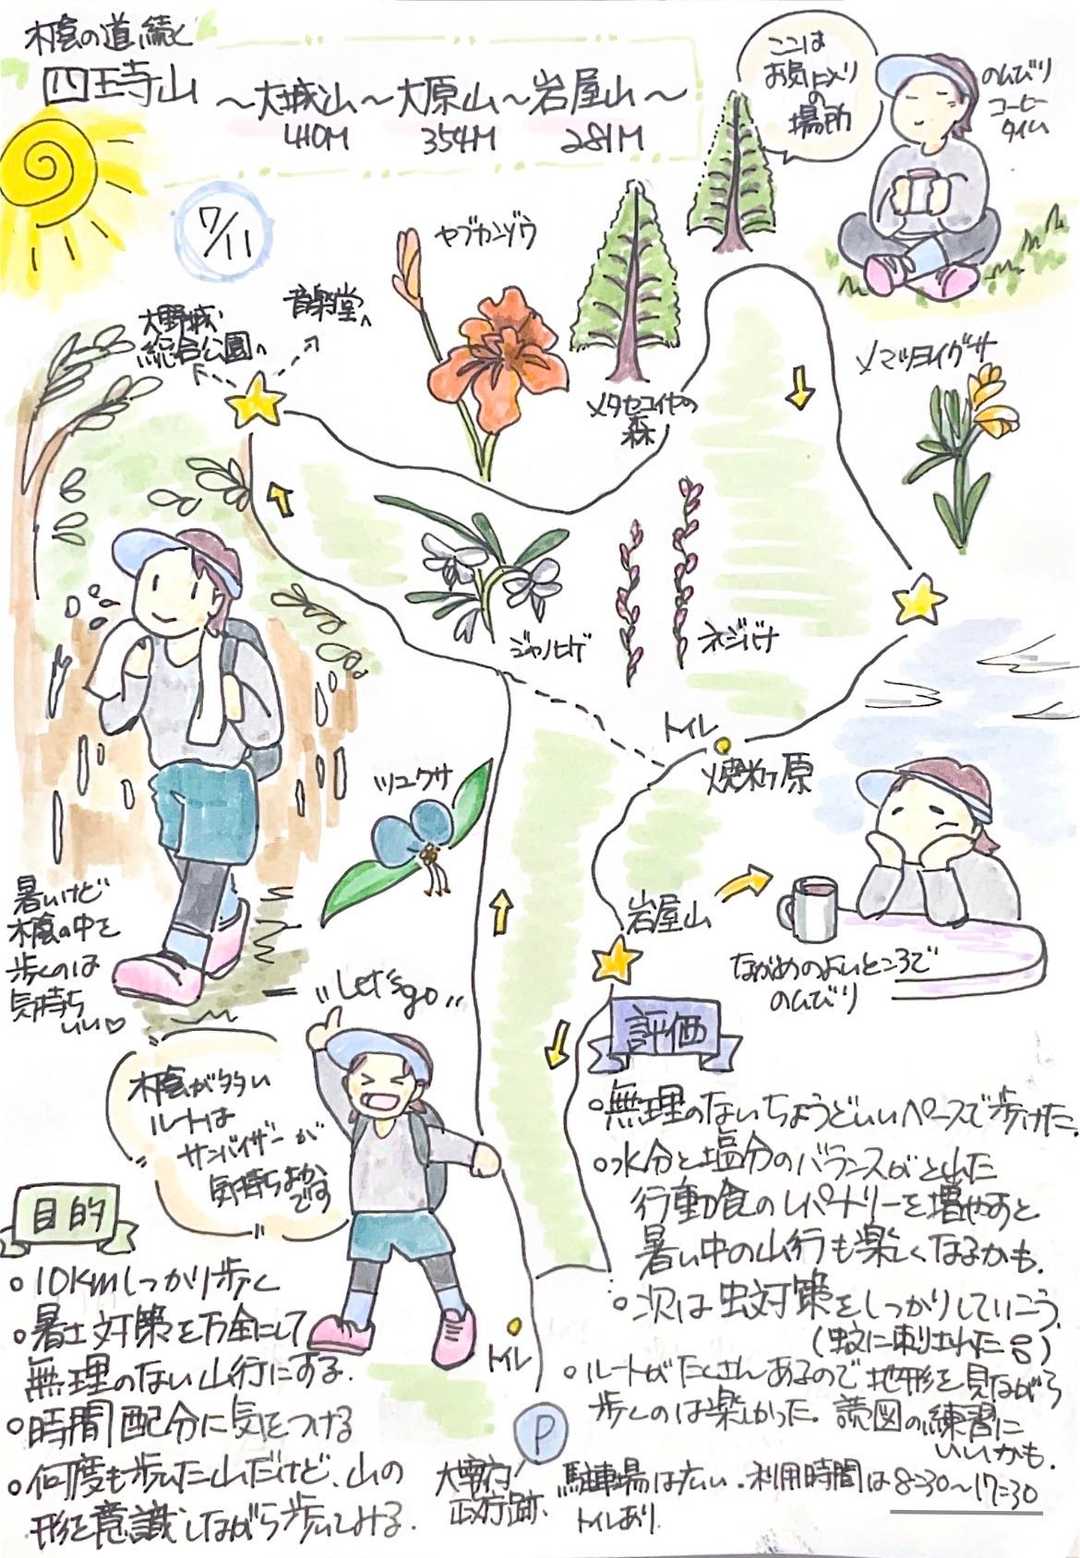 木陰の道続く
四王寺山 ～大城山～大原山～岩屋山～
410M 354M 281M
ここは
お気に入り
の
場所
のんびり
コーヒー
タイム
7/11
ヤブカンゾウ
音楽堂へ
大野城
総合公園へ
メタセコイヤの
森
メマツヨイグサ
ジャノヒゲ
ネジバナ
トイレ
焼米ヶ原
ツユクサ
暑いけど
木陰の中を
歩くのは
気持ち
いい♡
岩屋山
ながめのよいところで
のんびり
"Let's go"
木陰が多い
ルートは
サンバイザーが
気持ちよか
です
評価
○無理のないちょうどいいペースで歩けた。
○水分と塩分のバランスがとれた
行動食のレパートリーを増やすと
暑い中の山行も楽しくなるかも。
○次は虫対策をしっかりしていこう。
(蚊に刺された)
○ルートがたくさんあるので地形を見ながら
歩くのは楽しかった。読図の練習に
いいかも。
目的
○10kmしっかり歩く
○暑さ対策を万全にして
無理のない山行にする。
○時間配分に気をつける
○何度も歩いた山だけど、山の
形を意識しながら歩いてみる。
トイレ
P
大宰府
政庁跡
駐車場は広い。利用時間は8:30～17:30
トイレあり